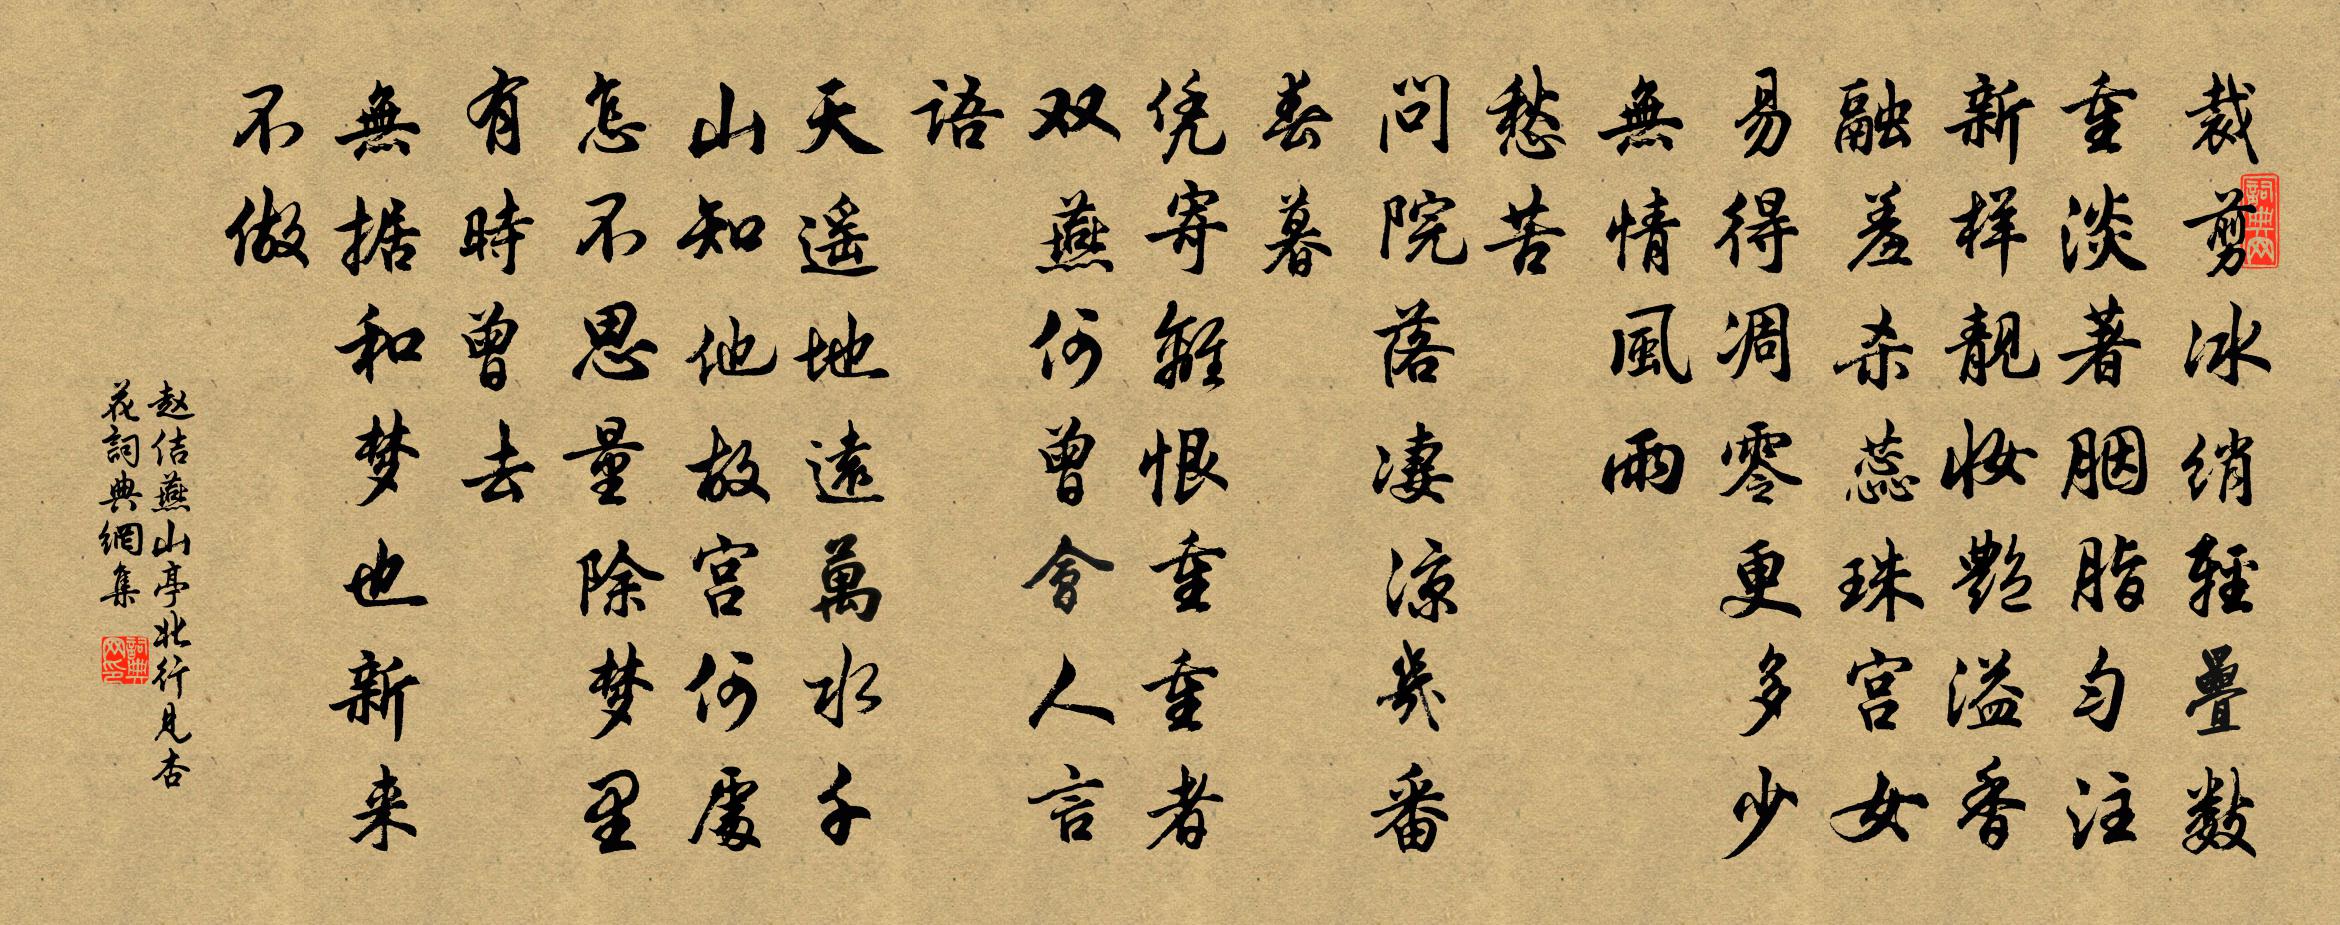 裁剪冰绡轻疊数
重淡著胭脂匀注
新样靓妆艷溢香
融羞杀蕊珠宫女
易得凋零更多少
無情風雨
愁苦
問院落凄涼幾番
春暮
凭寄離恨重重者
双燕何曾會人言
語
天遥地遠萬水千
山知他故宫何處
怎不思量除梦里
有時曾去
無据和梦也新来
不做
赵佶燕山亭北行見杏
花詞典網集
詞典网
詞典网印